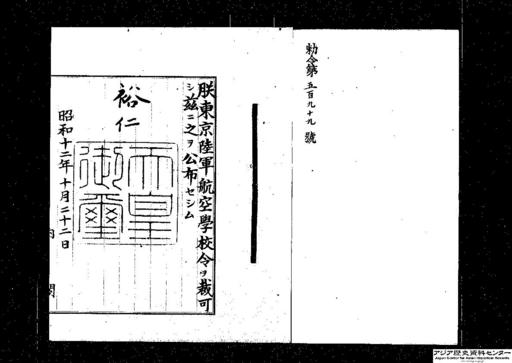 勅令第五百九十九號
朕東京陸軍航空學校令ヲ裁可
シ茲ニ之ヲ公布セシム
裕仁
天皇
御璽
昭和十二年十月二十二日
内閣
アジア歴史資料センター
Japan Center for Asian Historical Records